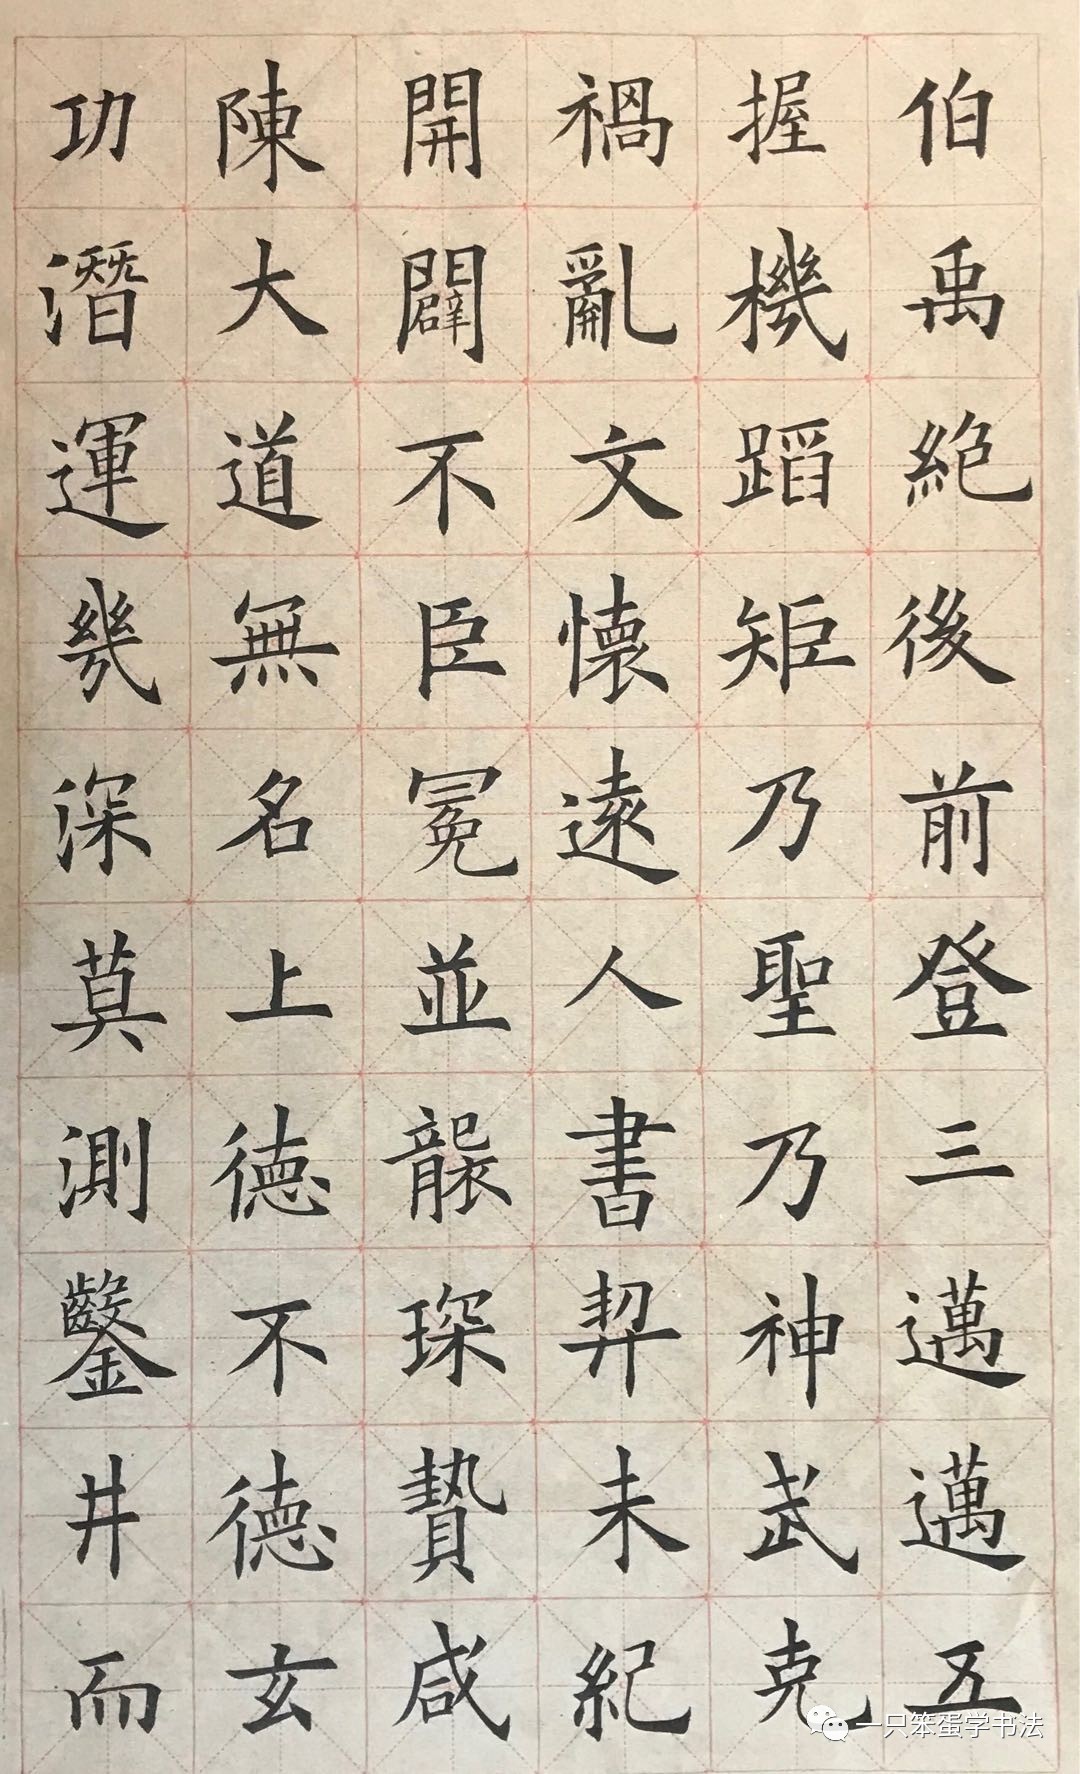 伯禹絶後前登三邁邁五
握機蹈矩乃聖乃神武克
禍亂文懷遠人書契未紀
開闢不臣冕並襲琛贄咸
陳大道無名上德不德玄
功潛運幾深莫測鑿井而
一只笨蛋学书法